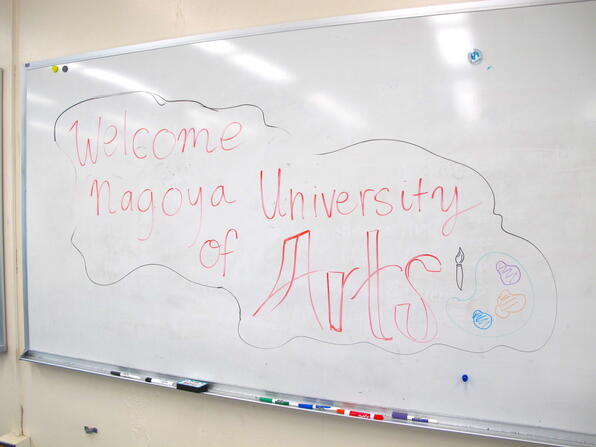 Welcome
Nagoya University
of Arts